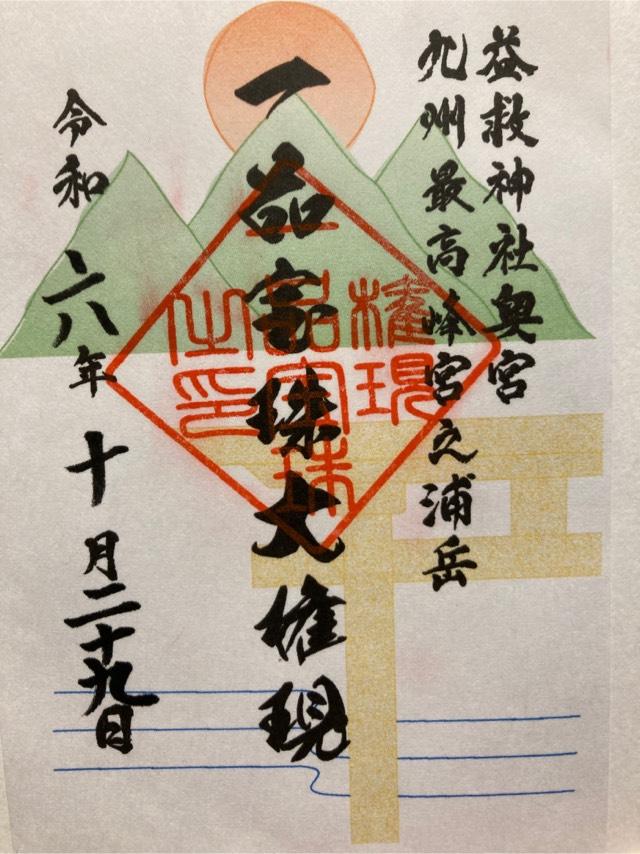 益救神社奥宮
九州最高峰宮之浦岳
一品宝珠大権現
權現
一品宝珠
之印
令和六年十月二十九日